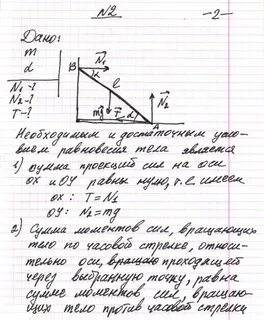 N2
-2-
Дано:
m
α
N₁ -?
N₂ -?
T -?
B
N₁
α
C
mg
T
α
N₂
A
Необходимым и достаточным усло-
вием равновесия тела является
1) сумма проекций сил на оси
ОХ и ОУ равны нулю, т.е. имеем
ОХ : T = N₁
ОУ : N₂ = mg
2) Сумма моментов сил, вращающих
тело по часовой стрелке, относи-
тельно оси, проходящей
через выбранную точку, равна
сумме моментов сил, вращаю-
щих тело против часовой стрелки